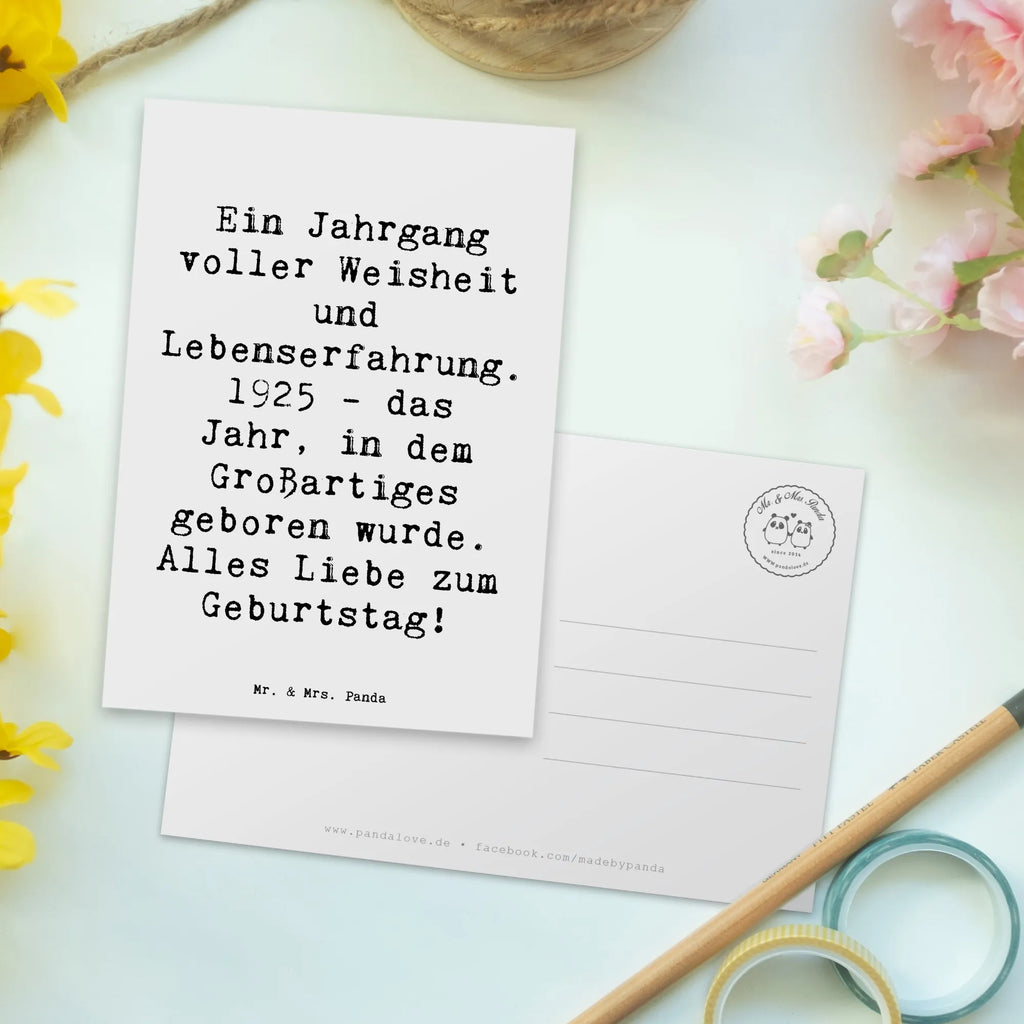 Ein Jahrgang
voller Weisheit
und
Lebenserfahrung.
1925 - das
Jahr, in dem
Großartiges
geboren wurde.
Alles Liebe zum
Geburtstag!
Mr. & Mrs. Panda
Mr. & Mrs. Panda
since 2014
www.pandalove.de
www.pandalove.de • facebook.com/madebypanda
PITT PASTEL FABER-CASTELL